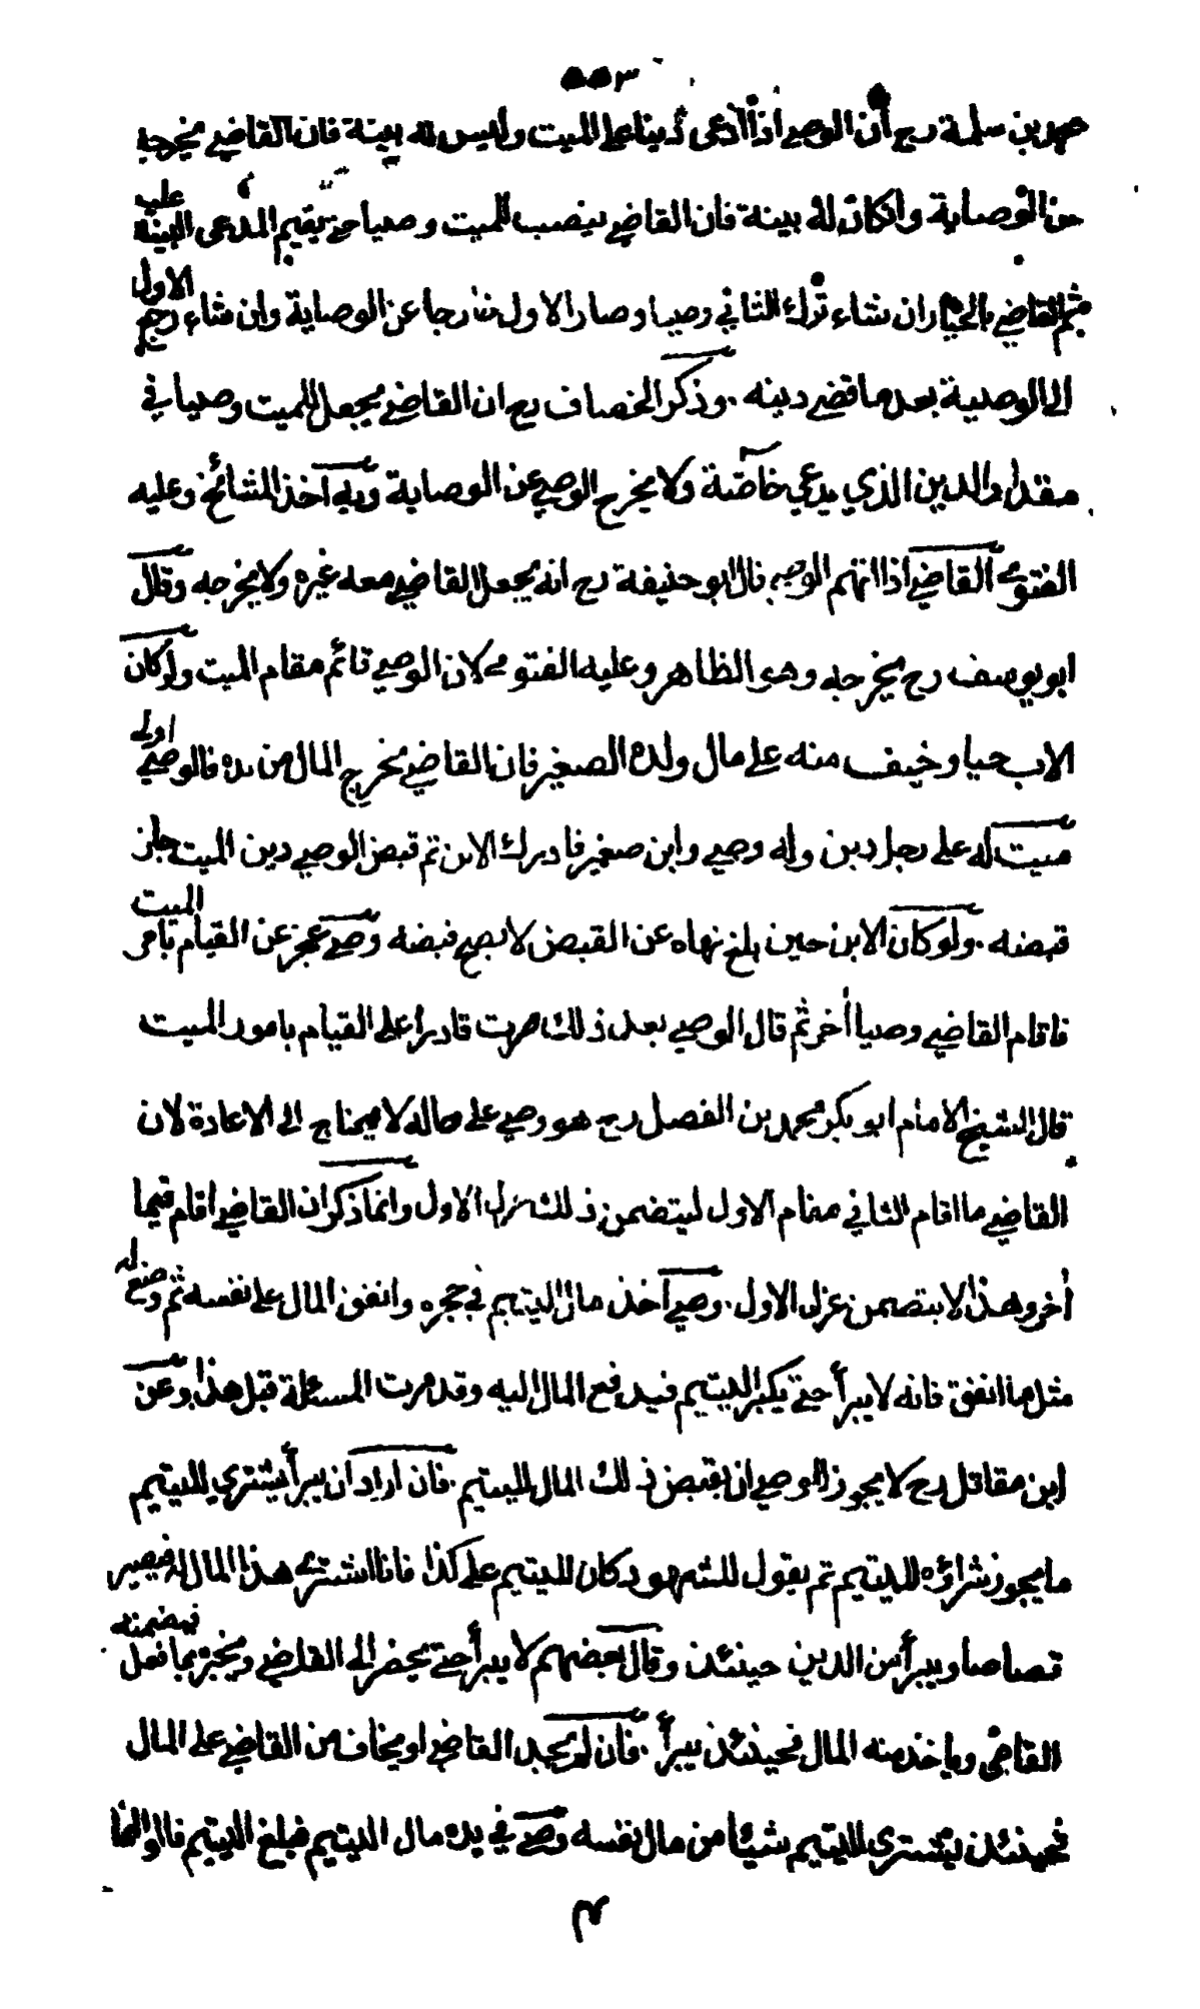 ٥٥٣
محمد بن سلمة رح ان الوصي اذا ادعى دينا على الميت وليس له بينة فان القاضي يخرجه
من الوصاية وانكان له بينة فان القاضي ينصب للميت وصيا حتى يقيم المدعى البينة عليه
ثم القاضي بالخيار ان شاء ترك الثاني وصيا وصار الاول خارجا عن الوصاية وان شاء رجع الاول
الى الوصية بعد ما قضى دينه . وذكر الخصاف رح ان القاضي يجعل للميت وصيا في
مقدار الدين الذي يدعي خاصة ولا يخرج الوصي عن الوصاية وبه اخذ المشائخ وعليه
الفتوى القاضي اذا اتهم الوصي قال ابو حنيفة رح انه يجعل القاضي معه غيره ولا يخرجه وقال
ابو يوسف رح يخرجه وهو الظاهر وعليه الفتوى لان الوصي قائم مقام الميت ولو كان
الاب حيا وخيف منه على مال ولده الصغير فان القاضي يخرج المال من يده فالوصي اولى
ميت له على رجل دين وله وصي وابن صغير فادرك الابن ثم قبض الوصي دين الميت جاز
قبضه . ولو كان الابن حين بلغ نهاه عن القبض لا يصح قبضه وصي عجز عن القيام بامر الميت
فاقام القاضي وصيا أخر ثم قال الوصي بعد ذلك صرت قادرا على القيام بامور الميت
قال الشيخ الامام ابو بكر محمد بن الفضل رح هو وصي على حاله لا يحتاج الى الاعادة لان
القاضي ما اقام الثاني مقام الاول ليتضمن ذلك عزل الاول وانما ذكر ان القاضي اقام قيما
أخر وهذا لا يتضمن عزل الاول . وصي أخذ مال اليتيم في حجره وانفق المال على نفسه ثم وضع له
مثل ما انفق فانه لا يبرأ حتى يكبر اليتيم فيدفع المال اليه وقد مرت المسئلة قبل هذا وعن
ابن مقاتل رح لا يجوز للوصي ان يقبض ذلك المال لليتيم . فان اراد ان يبرأ يشتري لليتيم
ما يجوز شراؤه لليتيم ثم يقول للشهود كان لليتيم علي كذا فانا اشترى هذا المال له فيصير
قصاصا ويبرأ من الدين حينئذ وقال بعضهم لا يبرأ حتى يحضر الى القاضي ويخبره بما فعل فيضمنه
القاضي وياخذ منه المال فحينئذ يبرأ . فان لم يجد القاضي او يخاف من القاضي على المال
فحينئذ يشتري لليتيم شيئا من مال نفسه وصي في يده مال اليتيم فبلغ اليتيم فالوا
م